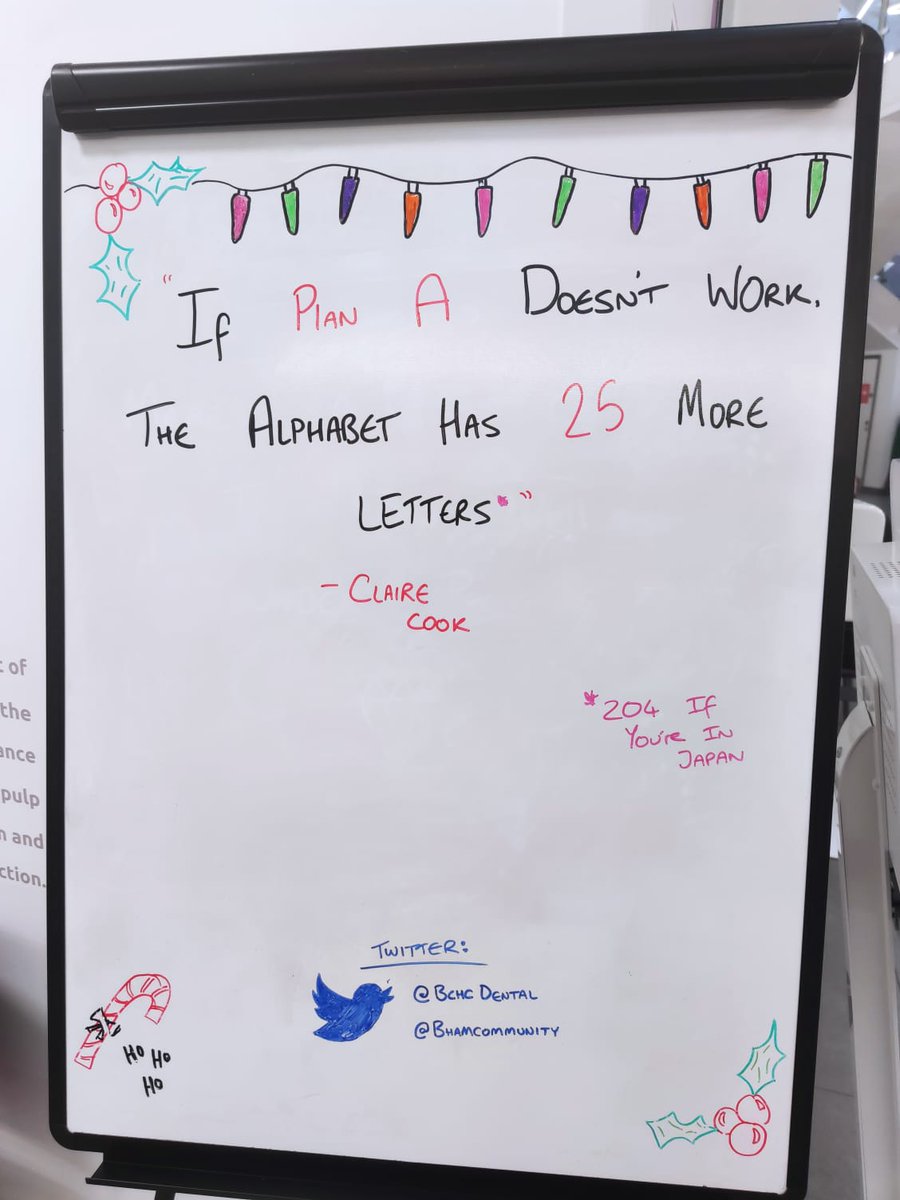 "If Plan A Doesn't Work.
The Alphabet Has 25 More
Letters*"
- Claire
Cook
*204 If
You're In
Japan
Twitter:
@BCHCDental
@Bhamcommunity
Ho Ho
Ho
of
the
ance
pulp
and
ction.